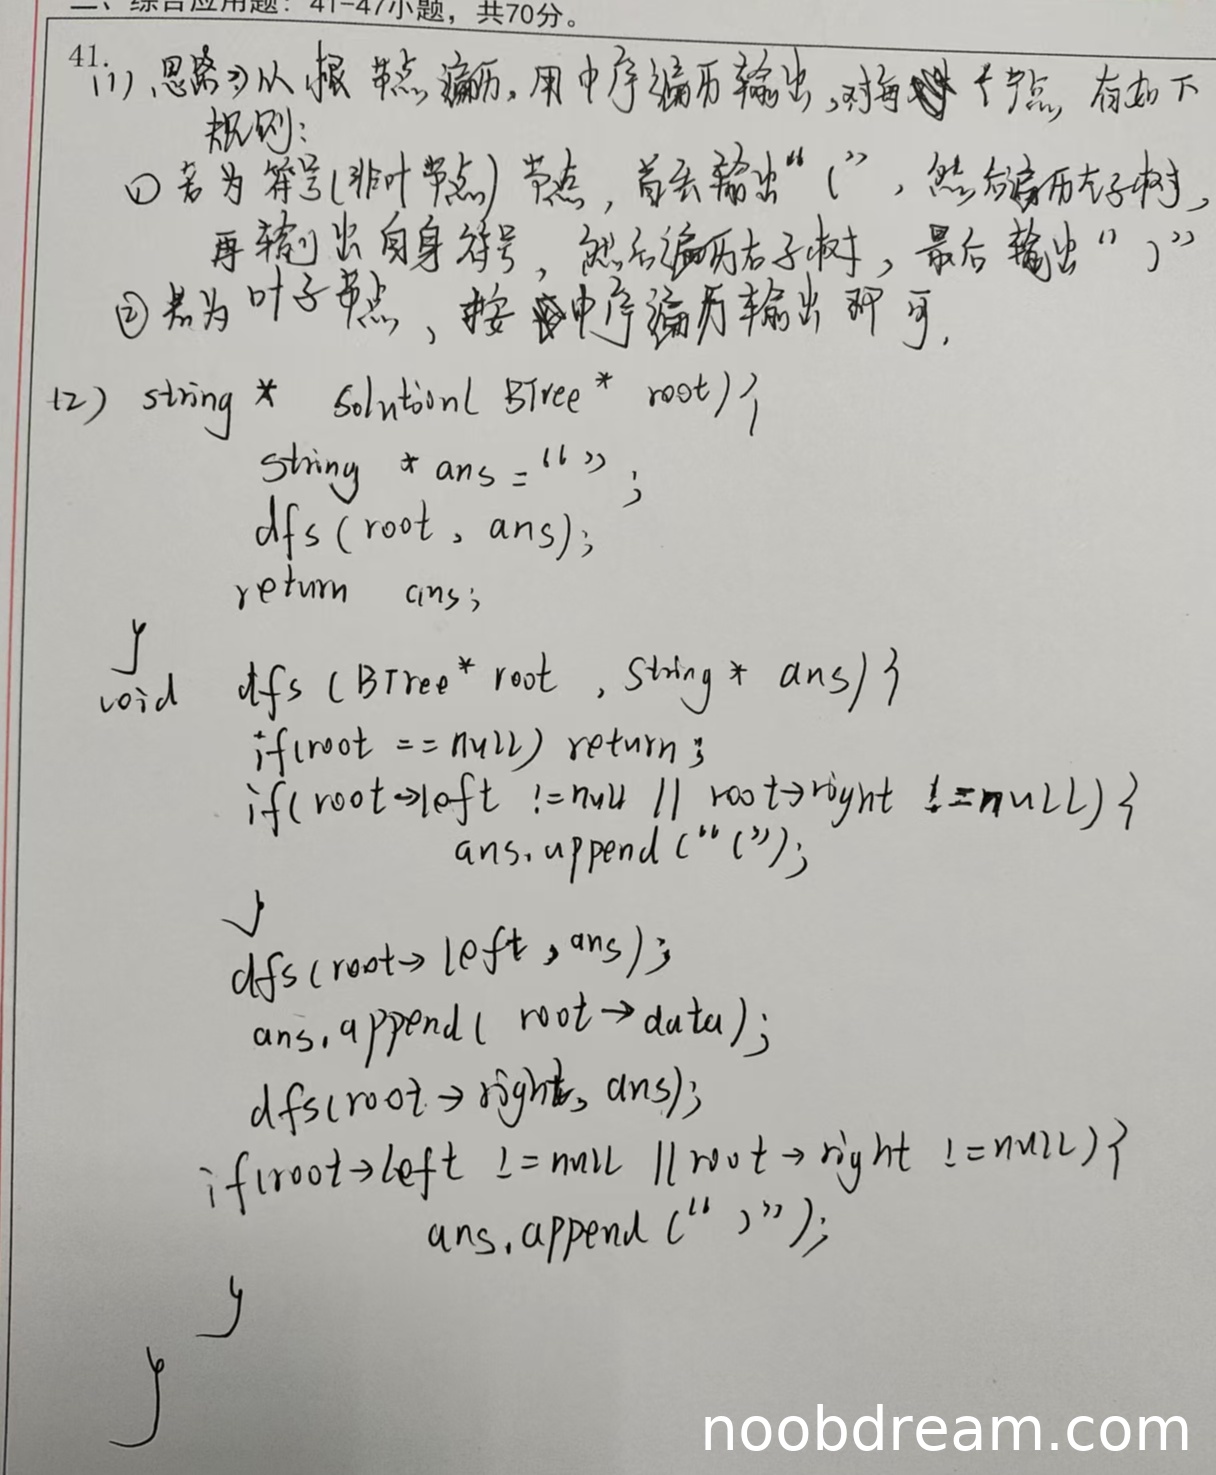 二、综合应用题：41-47小题，共70分。
41.
(1) 思路：从根节点遍历，用中序遍历输出，对每个节点，有如下
规则：
① 若为符号(非叶节点)节点，首先输出“(”，然后遍历左子树，
再输出自身符号，然后遍历右子树，最后输出“)”
② 若为叶子节点，按中序遍历输出即可.
(2) string * solution( BTree * root){
string * ans = “”;
dfs(root, ans);
return ans;
}
void dfs (BTree * root , string * ans) {
if(root == null) return;
if( root→left != null || root→right != null) {
ans.append (“(”);
}
dfs(root→left, ans);
ans.append( root→data);
dfs(root→right, ans);
if(root→left != null || root→right != null) {
ans.append (“)”);
}
}
noobdream.com